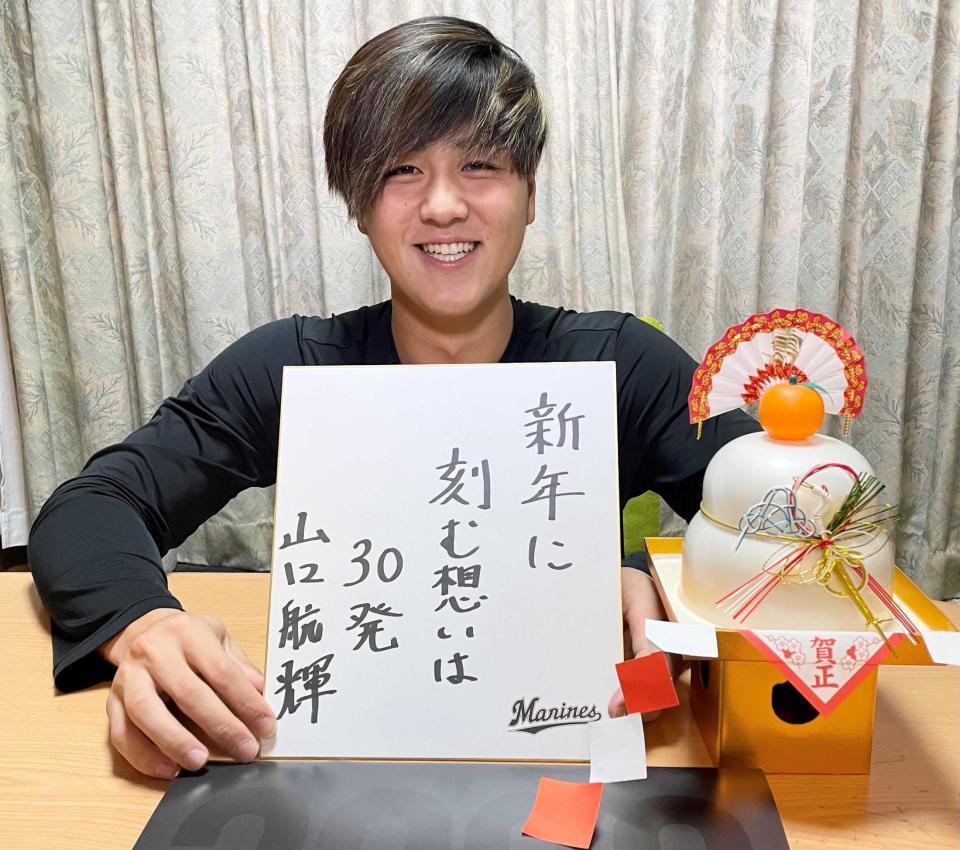 新年に
刻む想いは
30発
山口航輝
Marines
賀正